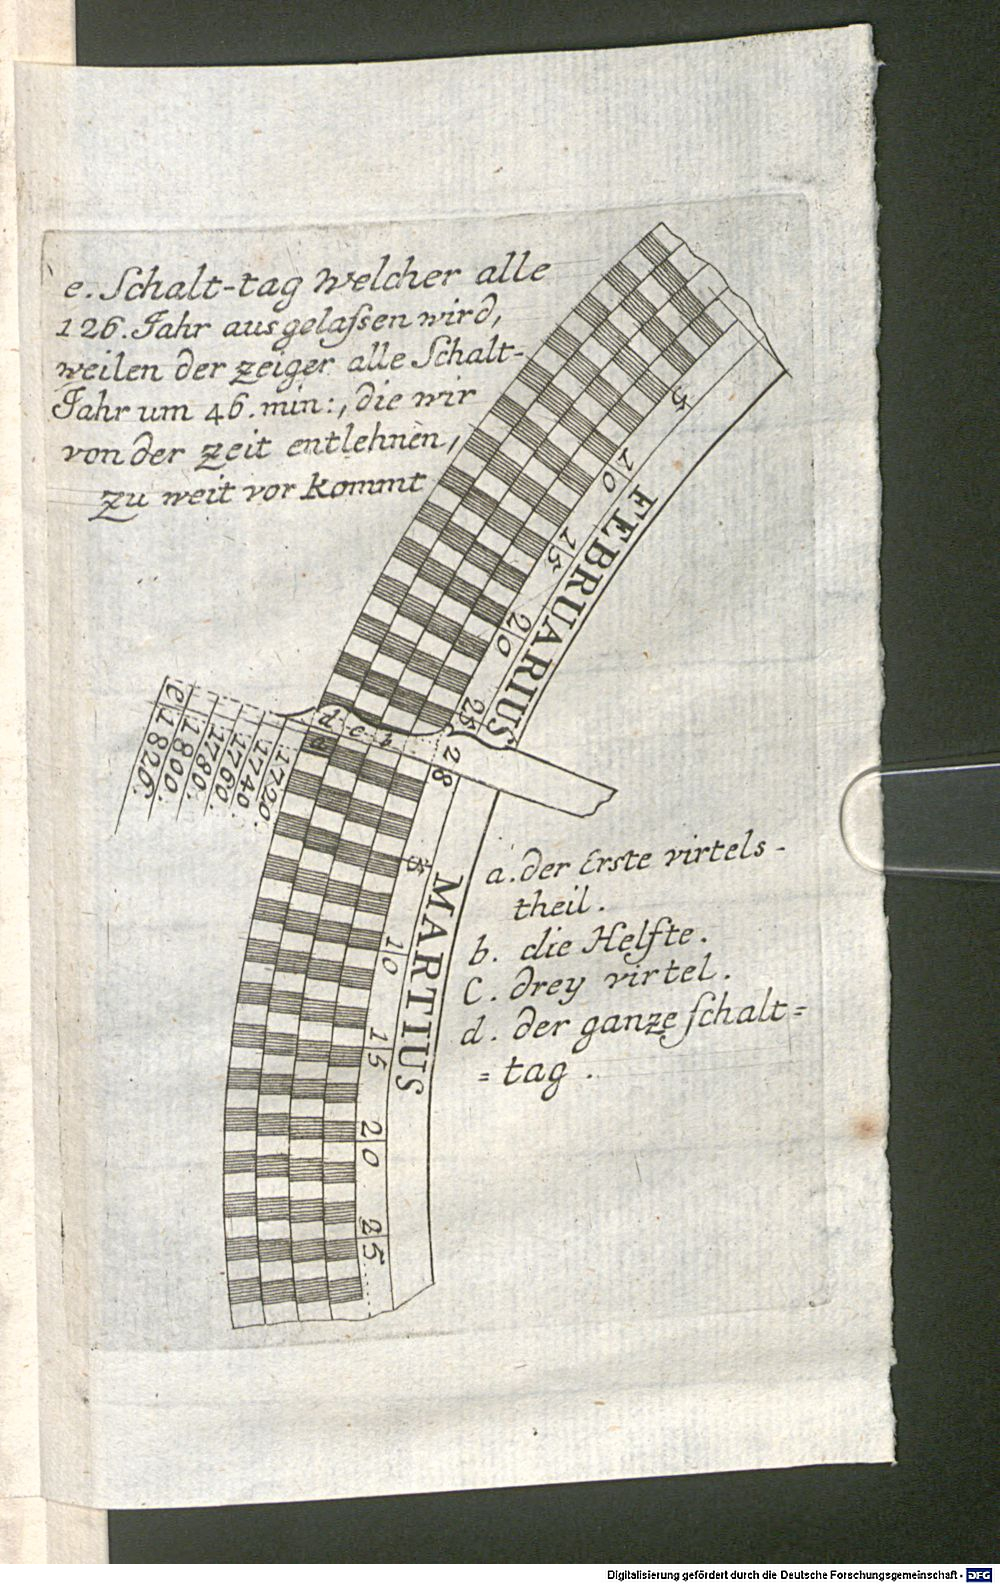 e. Schalt-tag Welcher alle
126. Jahr ausgelaſsen wird,
weilen der zeiger alle Schalt-
Jahr um 46. min:, die wir
von der zeit entlehnen,
zu weit vor kommt
5
10
15
20
25
FEBRUARIUS
28
d
c
b
a
e 1826.
1800.
1780.
1760.
1740.
1720.
5
10
15
20
25
MARTIUS
a. der Erste virtels-
theil.
b. die Helfte.
C. drey virtel.
d. der ganze ſchalt=
=tag.
Digitalisierung gefördert durch die Deutsche Forschungsgemeinschaft - DFG